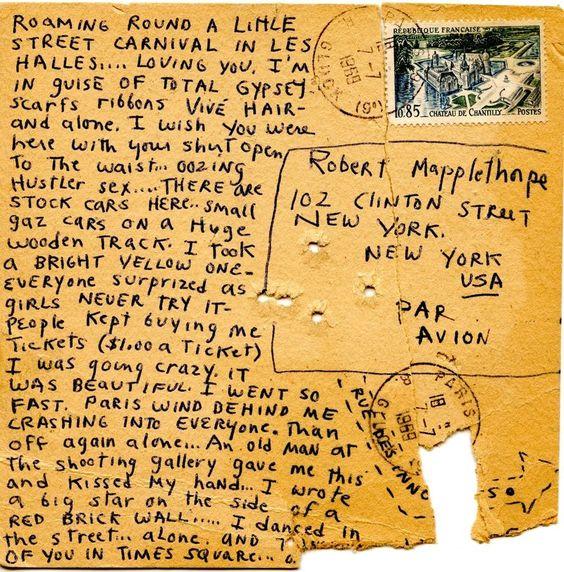 ROAMING ROUND A LITTLE
STREET CARNIVAL IN LES
HALLES.... LOVING YOU. I'M
IN GUISE OF TOTAL GYPSEY-
SCARFS RIBBONS VIVÉ HAIR-
and alone. I wish you were
here with your shirt open
To the waist... oozing
Hustler sex.... THERE ARE
STOCK CARS HERE.. small
gaz cars on a Huge
wooden TRACK. I TOOK
a BRIGHT YELLOW ONE-
EVERYONE SURPRIZED as
GIRLS NEVER TRY IT-
PEOPLE KEPT BUYING ME
TICKETS ($1.00 a TICKET)
I was going crazy. IT
WAS BEAUTIFUL. I WENT SO
FAST. PARIS WIND BEHIND ME
CRASHING INTO EVERYONE. Than
off again alone... An old man at
the shooting gallery gave me this
and kissed my hand... I wrote
a big star on the side of a
RED BRICK WALL..... I danced in
the street... alone. AND
OF YOU IN TIMES SQUARE...
RÉPUBLIQUE FRANÇAISE
0.85
CHATEAU DE CHANTILLY
POSTES
18
7-7
1969
Robert Mapplethorpe
102 CLINTON STREET
NEW YORK.
NEW YORK
USA
PAR
AVION
PARIS
18
7-7
1969
RUE DES INNO